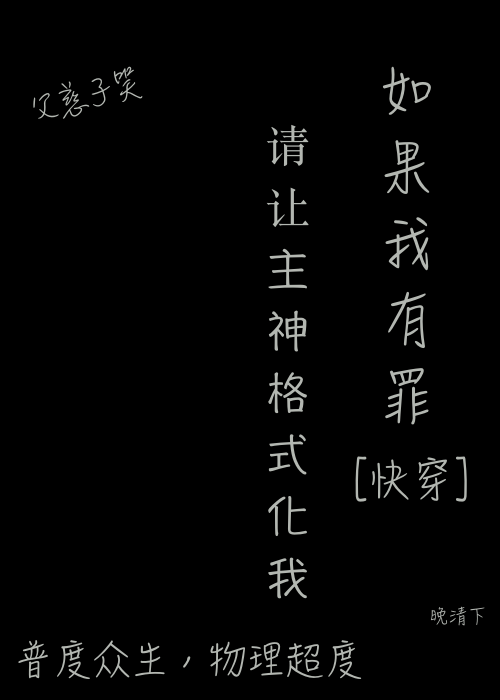 如果我有罪
[快穿]
请让主神格式化我
父慈子哭
晚清下
普度众生，物理超度